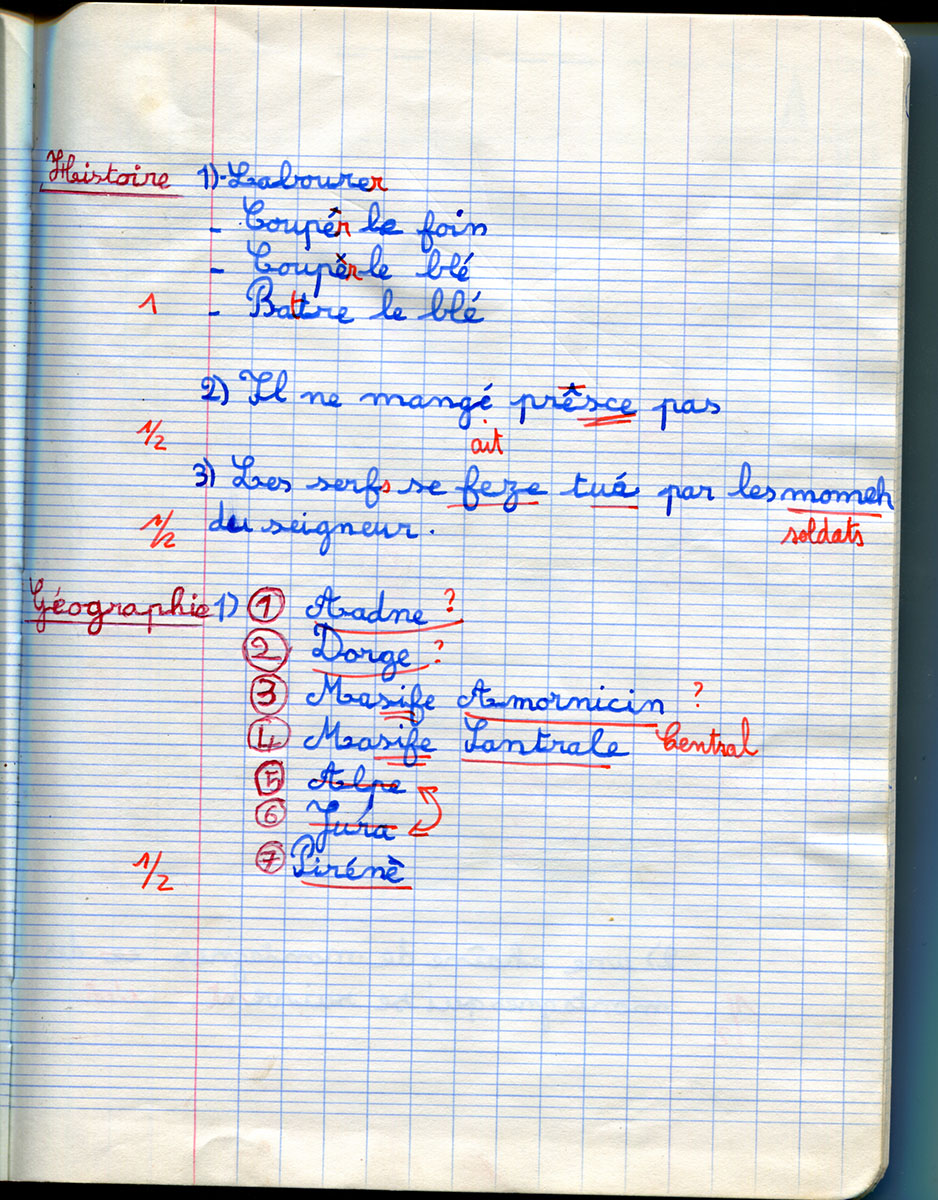 Histoire 1) - Labourer
- Coupêr le foin
- Coupêr le blé
1 - Battre le blé
2) Il ne mangé prêsce pas
1/2 ait
3) Les serfs se feze tuá par les momeh
1/2 du seigneur. soldats
Géographie 1) 1 Aadne ?
2 Dorge ?
3 Masife Amornicin ?
4 Masife Santrale Central
5 Alpe
6 Jura
1/2 7 Pirénè